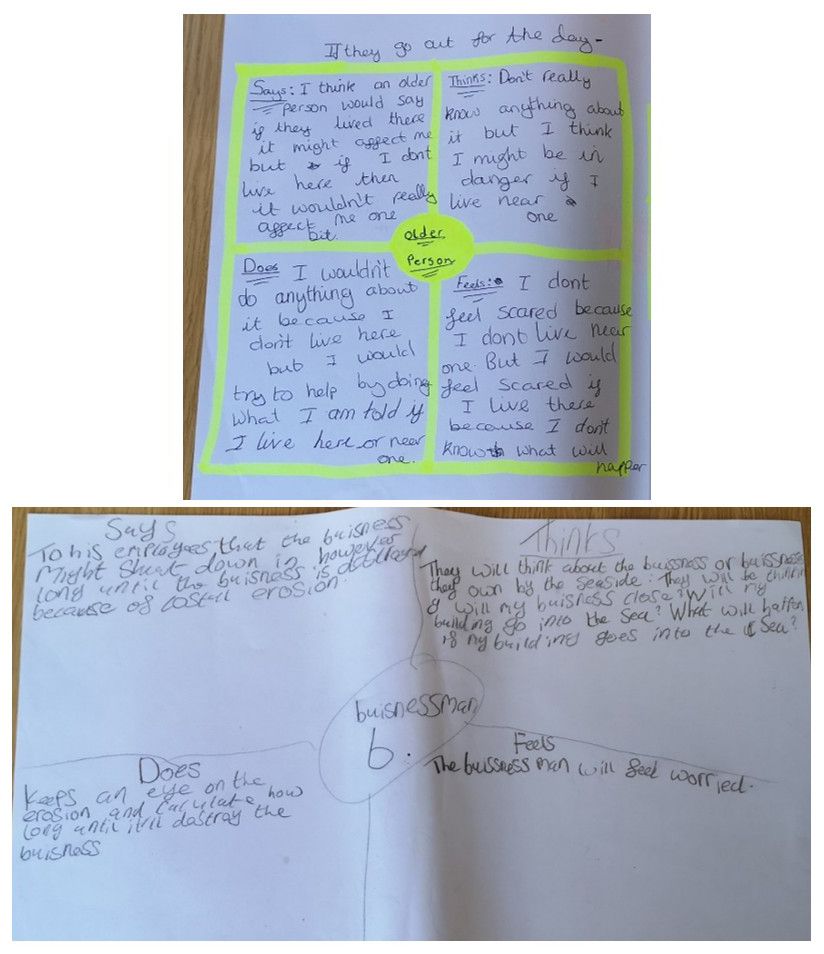 If they go out for the day-
Says: I think an older
person would say
if they lived there
it might affect me
but if I dont
live here then
it wouldn't really
affect me one
bit.
Thinks: Don't really
know anything about
it but I think
I might be in
danger if I
live near a
one
Older
Person
Does I wouldn't
do anything about
it because I
don't live here
but I would
try to help by doing
what I am told if
I live here or near
one.
Feels: I dont
feel scared because
I dont live near
one. But I would
feel scared if
I live there
because I don't
know what will
happen
Says
To his employees, that the buisness
Might shut down in however
long until the buisness is
because of costall erosion.
Thinks
They will think about the bussness or buissness
they own by the seaside. They will be thinking
if will my buisness close? Will my
building go into the sea? What will haffen
if my building goes into the sea?
buisnessman
6.
Does
Keeps an eye on the
erosion and calculate how
long until it'll dastray the
buisness
Feels
The bussness man will feel worried.